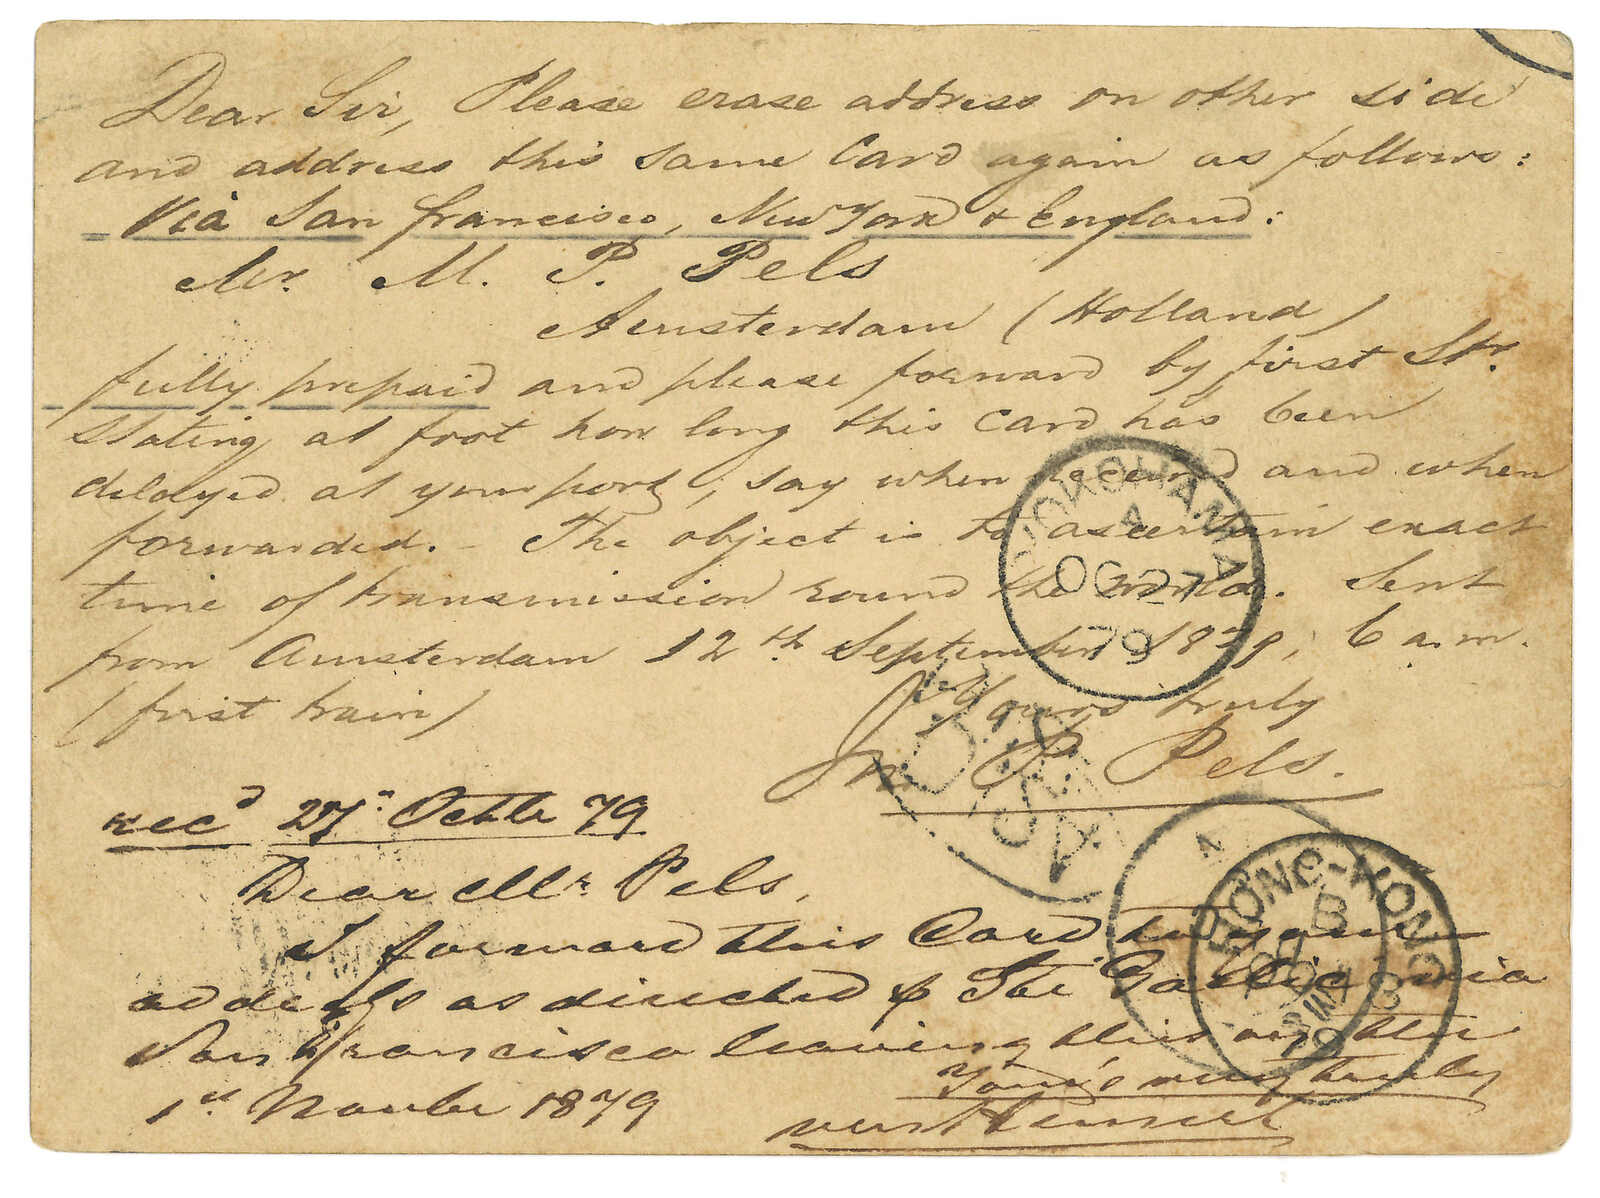 Dear Sir, Please erase address on other side
and address this same Card again as follows:
Via San Francisco, New York & England:
Mr. M. P. Pels
Amsterdam (Holland)
fully prepaid and please forward by first Str.
Stating at foot how long this Card has been
delayed at your port, say when received and when
forwarded. – The object is to ascertain exact
time of transmission round the world. Sent
from Amsterdam 12th September 1879, 6 a.m.
(first train)
Yours truly
P. Pels.
recd 27n Octbr 79
Dear Mr Pels,
I forward this Card to your
address as directed p Str Gaelic via
San Francisco leaving this on the
1st Novbr 1879
Yours very truly
van Hemert
YOKOHAMA
A
OC 27
79
HONG-KONG
B
79
A